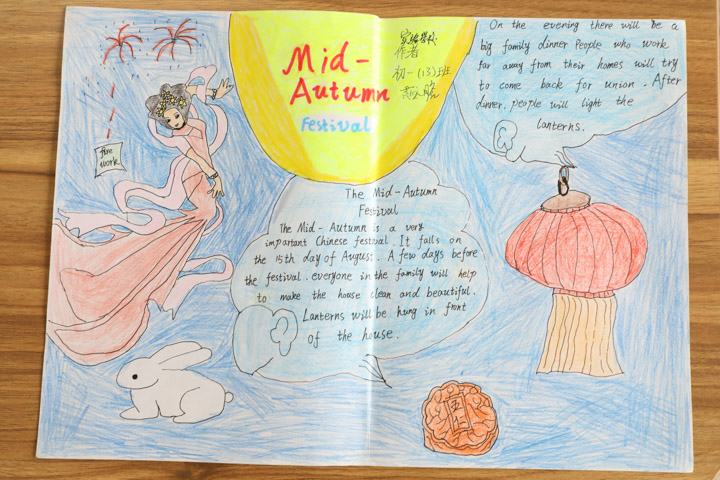 Mid-
Autumn
Festival
作者
初一(13)班
On the evening there will be a
big family dinner People who work
far away from their homes will try
to come back for union. After
dinner. people will light the
lanterns.
fire
work
The Mid-Autumn
Festival
The Mid-Autumn is a very
important Chinese festival. It falls on
the 15th day of August. A few days before
the festival. everyone in the family will help
to make the house clean and beautiful.
Lanterns will be hung in front
of the house.
五仁